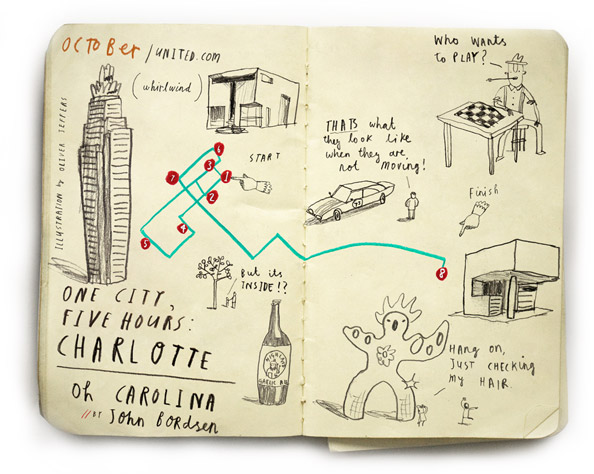 OCTOBER / UNITED.COM
(whirlwind)
ILLUSTRATION by OLIVER JEFFERS
START
6
3
1
7
2
4
5
8
But its
INSIDE!?
ONE CITY,
FIVE HOURS:
CHARLOTTE
Oh CAROLINA
// BY John Bordsen
HIGHLAND
GAELIC ALE
WHO WANTS
to PLAY?
THATS what
they look like
when they are
not moving!
Finish
HANG ON,
JUST CHECKING
MY HAIR